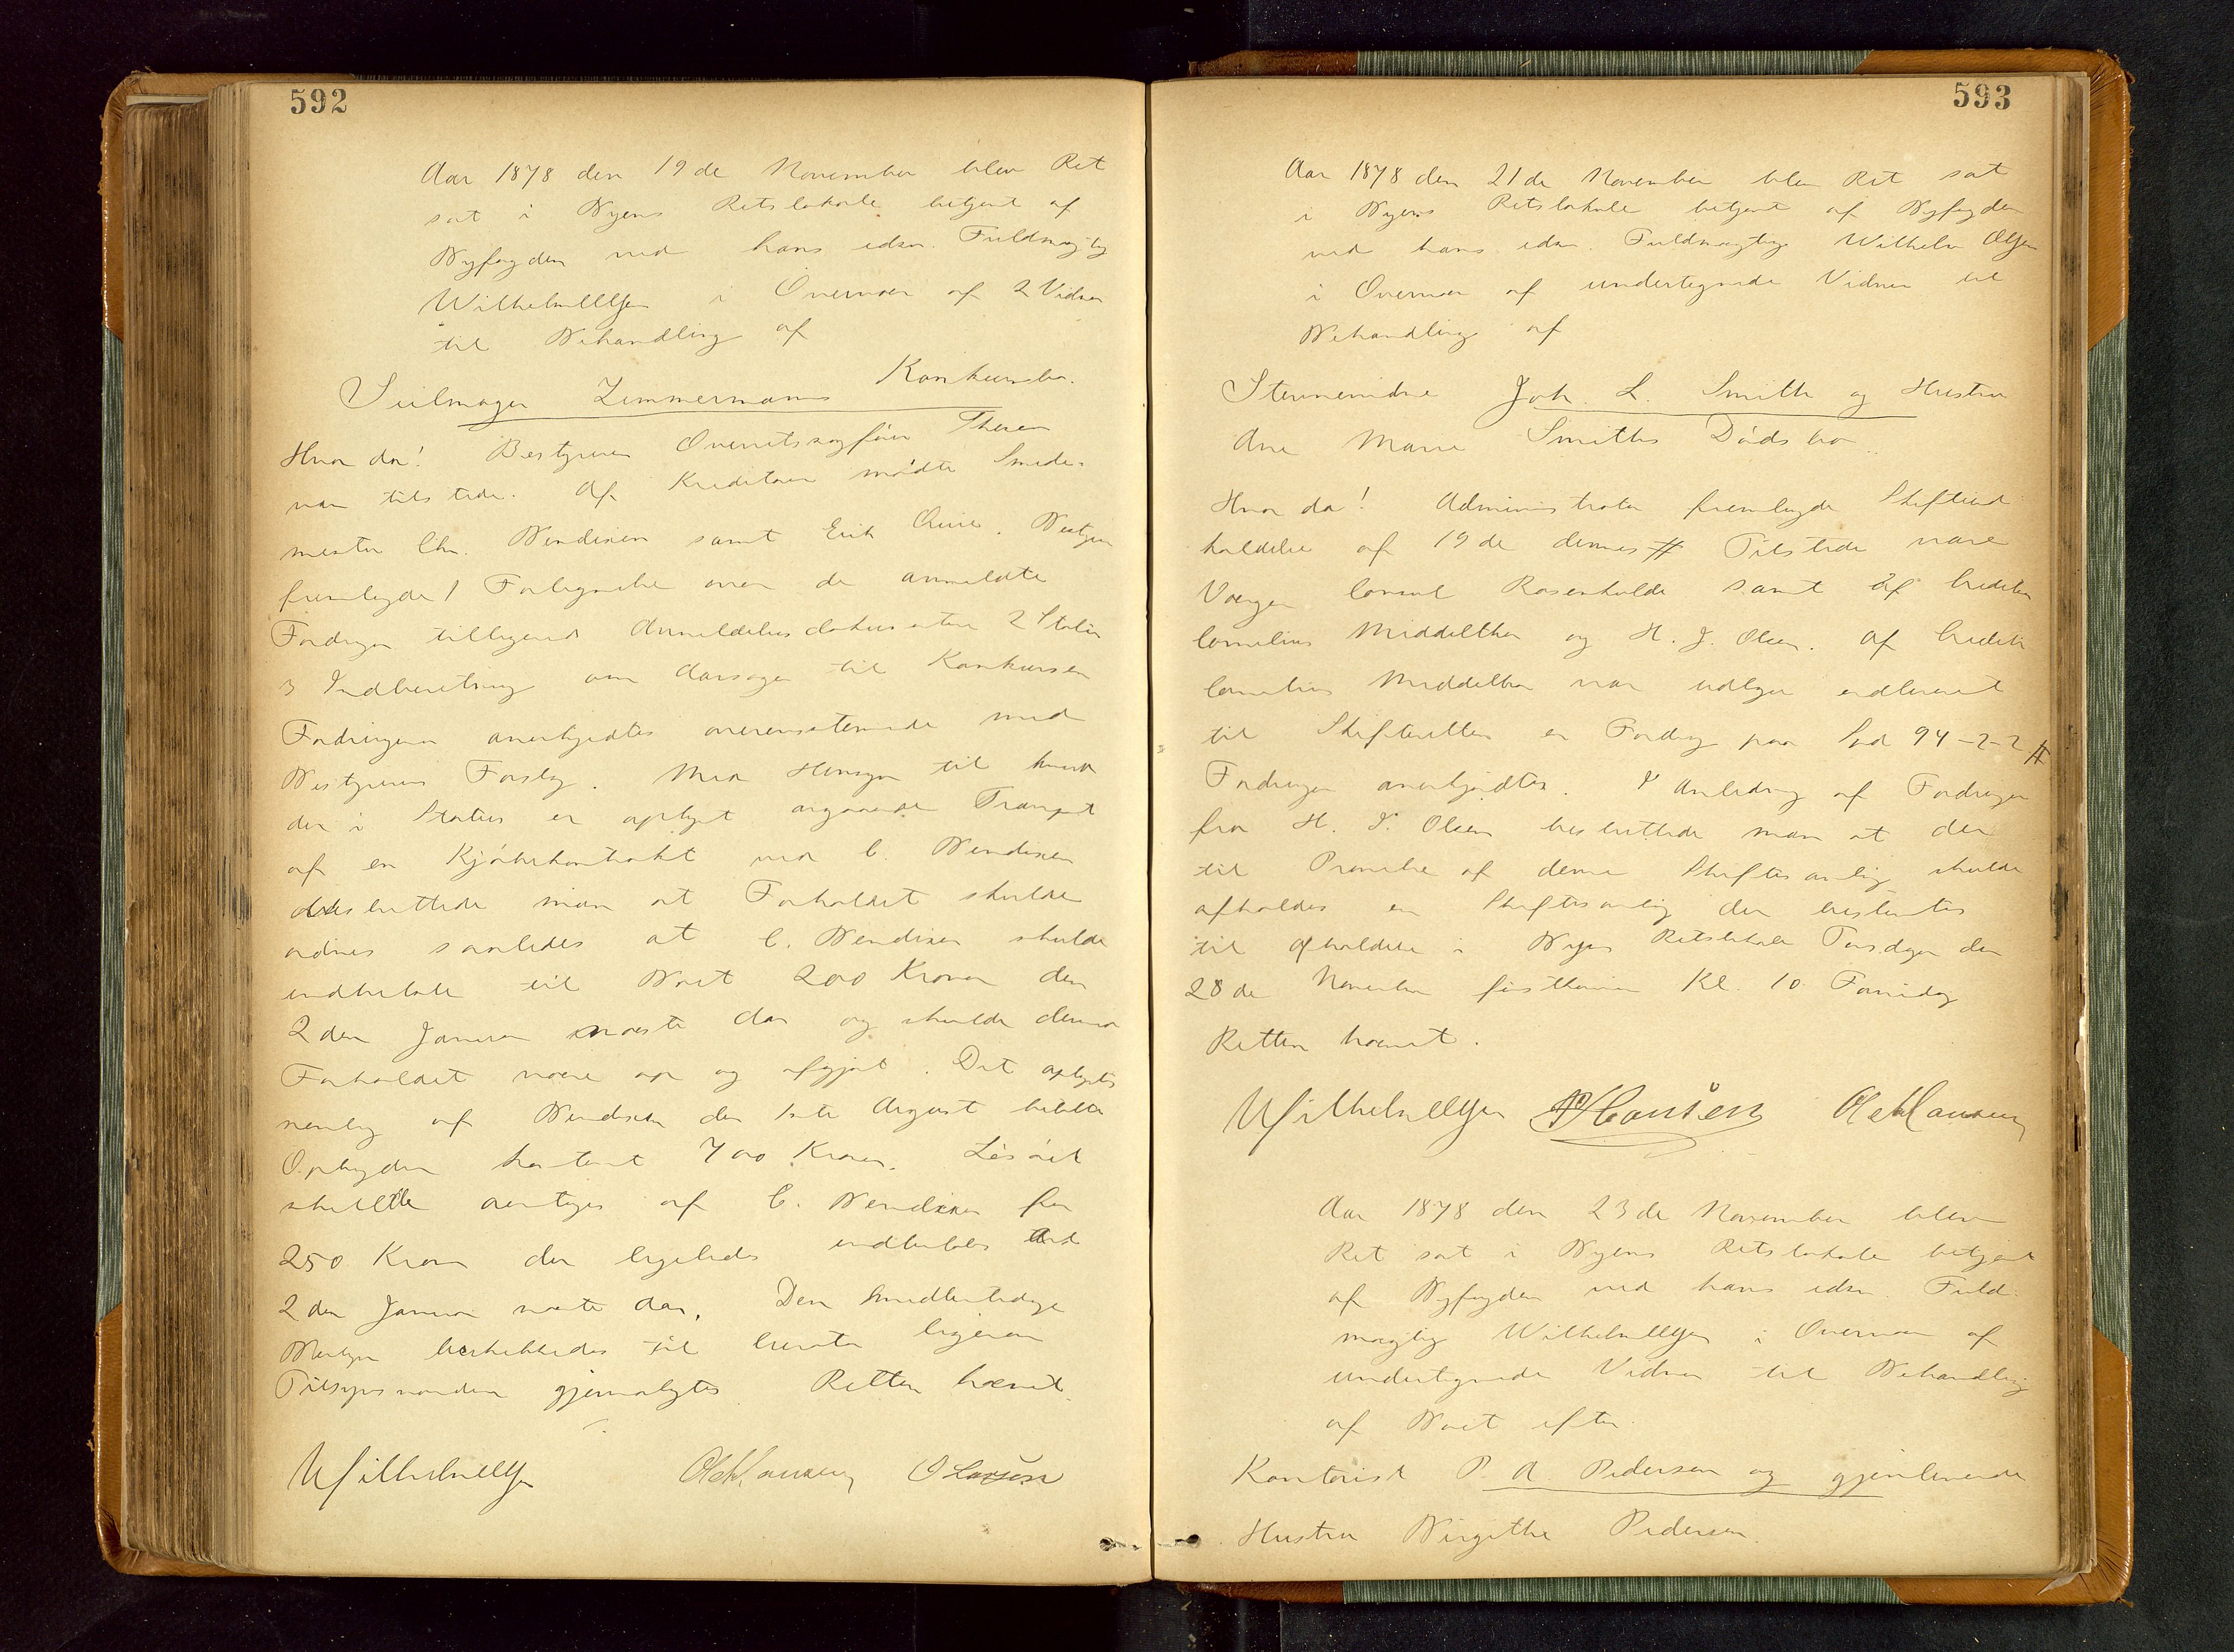 592
Aar 1878 den 19de November blev Ret
sat i Byens Retslokale betjent af
Byfogden ved hans edsv. Fuldmægtig
Wilhelm Olsen i Overvær af 2 Vidner
til Behandling af
Seilmager Zimmermanns Konkursbo.
Hvor da! Bestyreren Overretssagfører
var tilstede. Af Kreditorer mødte Smede-
mester Chr. Bendixen samt Erik
fremlagde 1 Fortegnelse over de anmeldte
Fordringer tilligemed Anmeldelsesdokumenterne 2 Status
3 Indberetning om Aarsagen til Konkursen
Fordringerne anerkjendtes overensstemmende med
Bestyrerens Forslag. Med Hensyn til hvad
der i Status er oplyst angaaende Transport
af en Kjøbekontrakt ved C. Bendixen
besluttede man at Forholdet skulde
ordnes saaledes at C. Bendixen skulde
indbetale til Boet 200 Kroner den
2den Januar næste Aar og skulde dermed
Forholdet være op og afgjort. Det oplystes
nemlig af Bendixen den 1ste August betalte
Opbuden kontant 700 Kroner. Løsøret
skulde overtages af C. Bendixen for
250 Kroner der ligeledes indbetales
2den Januar næste Aar. Den midlertidige
Bestyrer beskikkedes til ligesom
Tilsynsmanden gjenvalgtes Retten hævet.
Wilhelm Olsen Ole Hansen O Larsen
593
Aar 1878 den 21de November blev Ret sat
i Byens Retslokale betjent af Byfogden
ved hans edsv. Fuldmægtig Wilhelm Olsen
i Overvær af undertegnede Vidner til
Behandling af
Stevnevidne Joh. L. Smith og Hustru
Ane Marie Smiths Dødsbo
Hvor da! Administrator fremlagde Skifteind
kaldelse af 19de dennes # Tilstede vare
Værgen Consul Rosenkilde samt af Creditorer
Cornelius Middelthon og H. J. Olsen. Af Creditor
Cornelius Middelthon var indleveret
til Skifteretten en Fordring paa Spd 94-2-2 #
Fordringen anerkjendtes. I Anledning af Fordringen
fra H. J. Olsen besluttede man at der
til Prøvelse af denne Skiftesamling skulde
afholdes en Skiftesamling der bestemtes
til Afholdelse i Byens Retslokale Torsdagen den
28de November førstkommende Kl. 10 Formiddag
Retten hævet.
Wilhelm Olsen P Hansen Ole Hansen
Aar 1878 den 23de November blev
Ret sat i Byens Retslokale betjent
af Byfogden ved hans edsv. Fuld-
mægtig Wilhelm Olsen i Overvær af
undertegnede Vidner til Behandling
af Boet efter
Kontorist P. A. Pedersen og gjenlevende
Hustru Birgithe Pedersen.